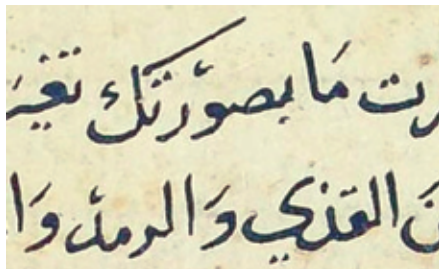 رت مَا بصوّرتك تغيَر
نَ القذي وَالرمد وَا